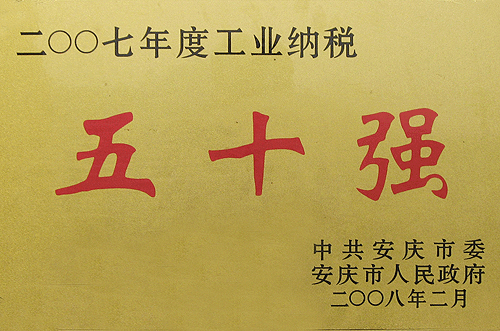 二〇〇七年度工业纳税
五十强
中共安庆市委
安庆市人民政府
二〇〇八年二月